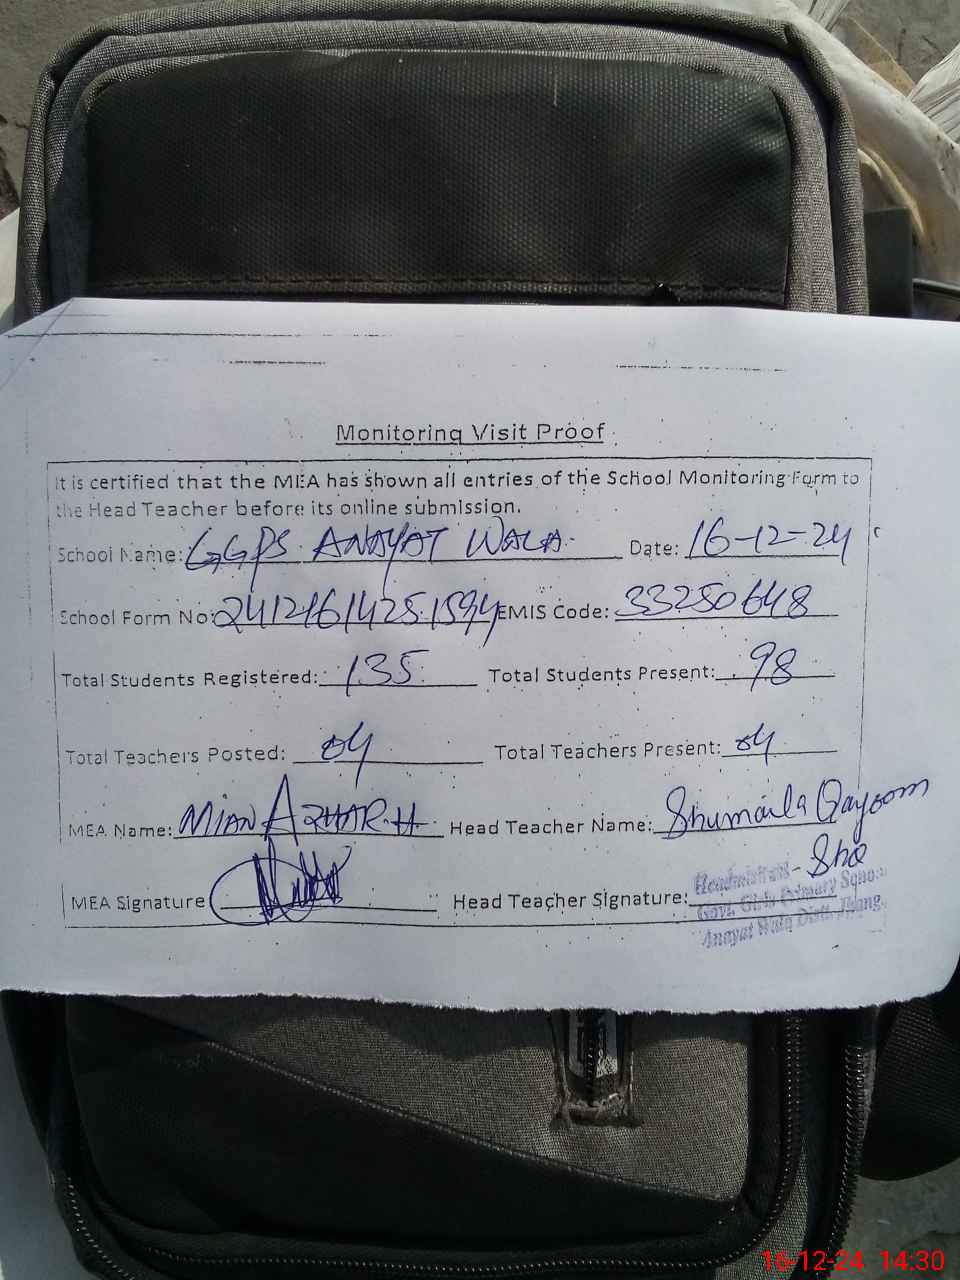 Monitoring Visit Proof
It is certified that the MEA has shown all entries of the School Monitoring Form to
the Head Teacher before its online submission.
School Name: GGPS ANAYAT WALA. Date: 16-12-24
School Form No: 24121614251594 EMIS Code: 33250648
Total Students Registered: 135 Total Students Present: 98
Total Teachers Posted: 04 Total Teachers Present: 04
MEA Name: MIAN AZHAR.H. Head Teacher Name: Shumaila Qayoom
MEA Signature Head Teacher Signature:
Headmistress
Govt. Girls Primary School
Anayat Wala Distt. Jhang.
16-12-24 14:30